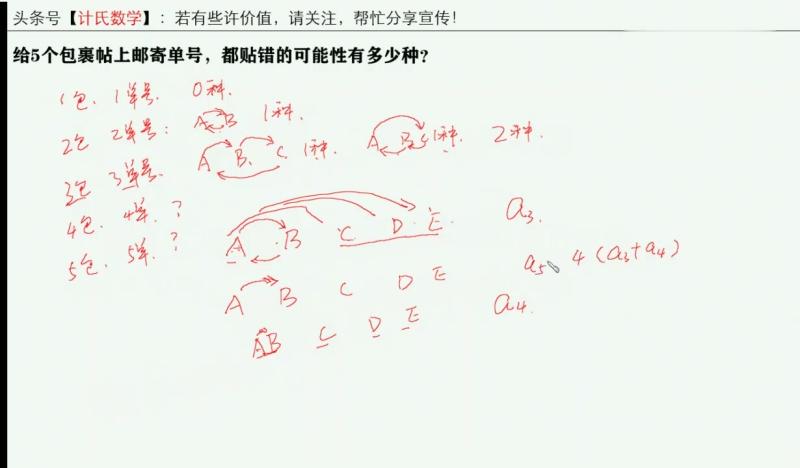 头条号【计氏数学】：若有些许价值，请关注，帮忙分享宣传！
给5个包裹帖上邮寄单号，都贴错的可能性有多少种？
1包. 1单号. 0种.
2包 2单号： A B 1种.
3包 3单号. A B. C. 1种. A B C 1种. 2种.
4包. 4单. ？
5包. 5单. ？
A B C D E. a3.
A B C D E a5 4(a3+a4)
AB C D E a4.